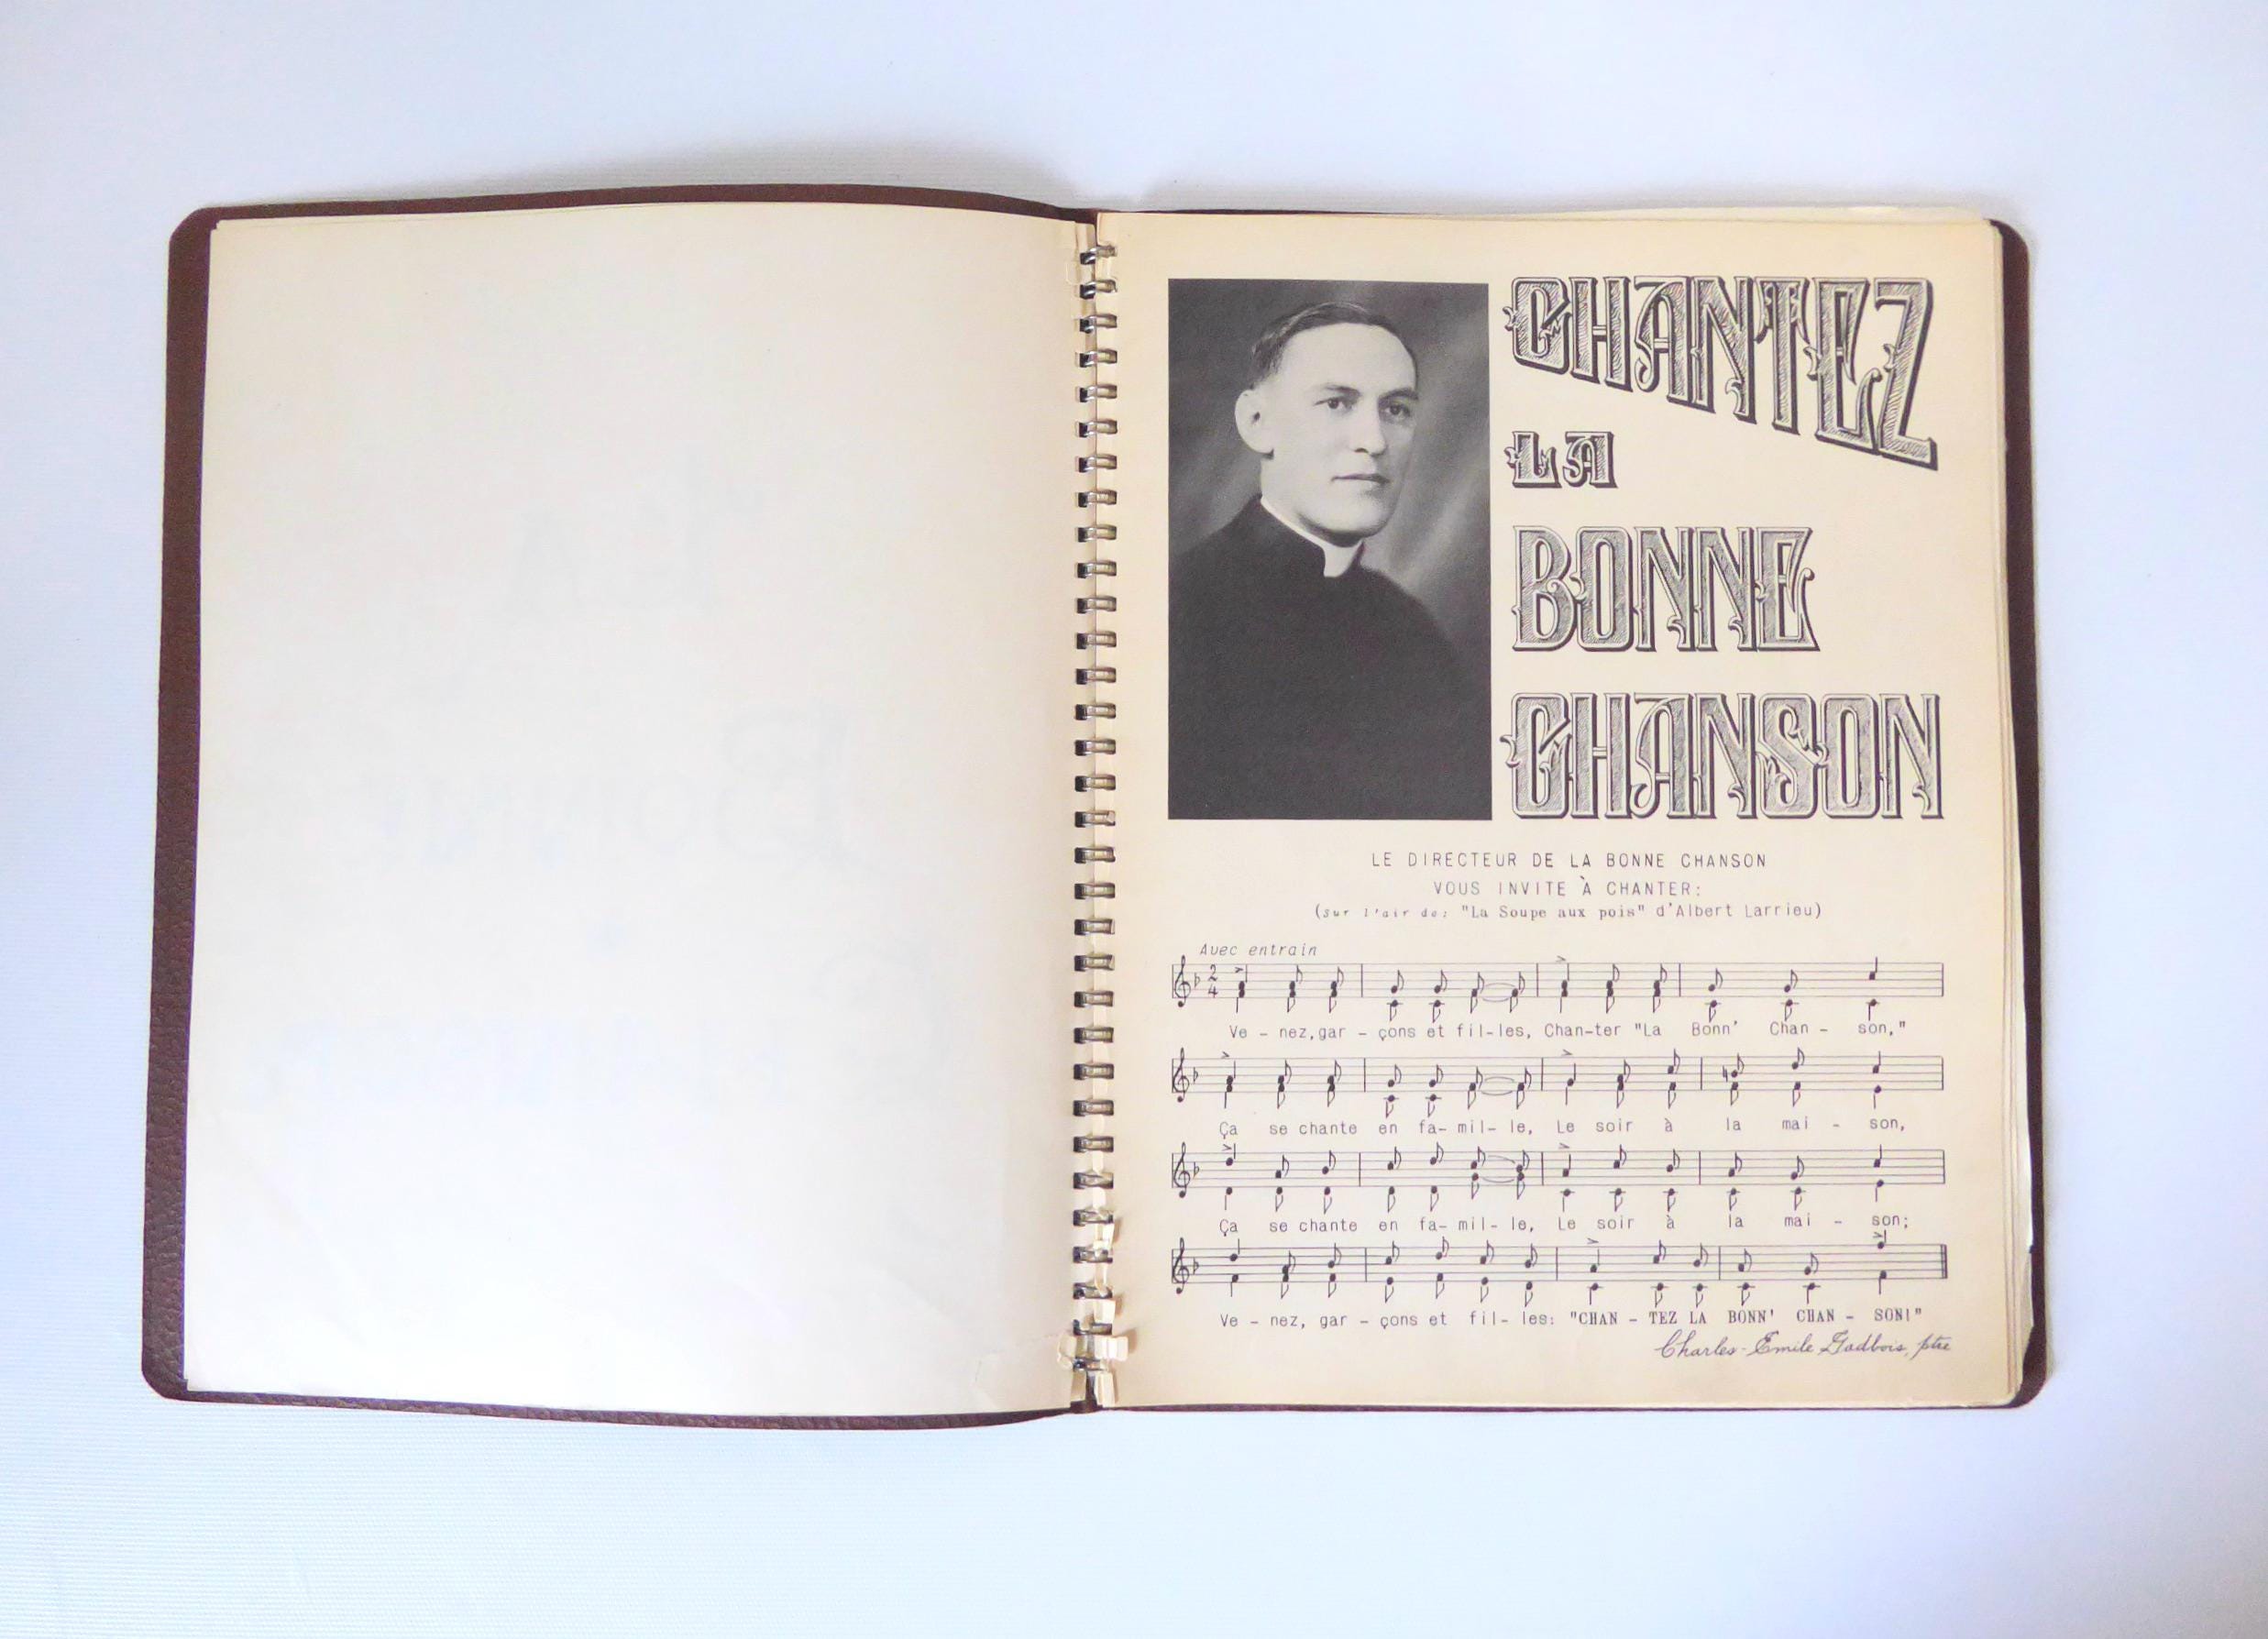 CHANTEZ
LA
BONNE
CHANSON
LE DIRECTEUR DE LA BONNE CHANSON
VOUS INVITE À CHANTER:
(Sur l'air de: "La Soupe aux pois" d'Albert Larrieu)
Avec entrain
2
4
Ve - nez, gar - çons et fil-les, Chan-ter "La Bonn' Chan - son,"
Ça se chante en fa- mil- le, Le soir à la mai - son,
Ça se chante en fa- mil- le, Le soir à la mai - son;
Ve - nez, gar - çons et fil- les: "CHAN - TEZ LA BONN' CHAN - SON!"
Charles-Emile Gadbois, ptre